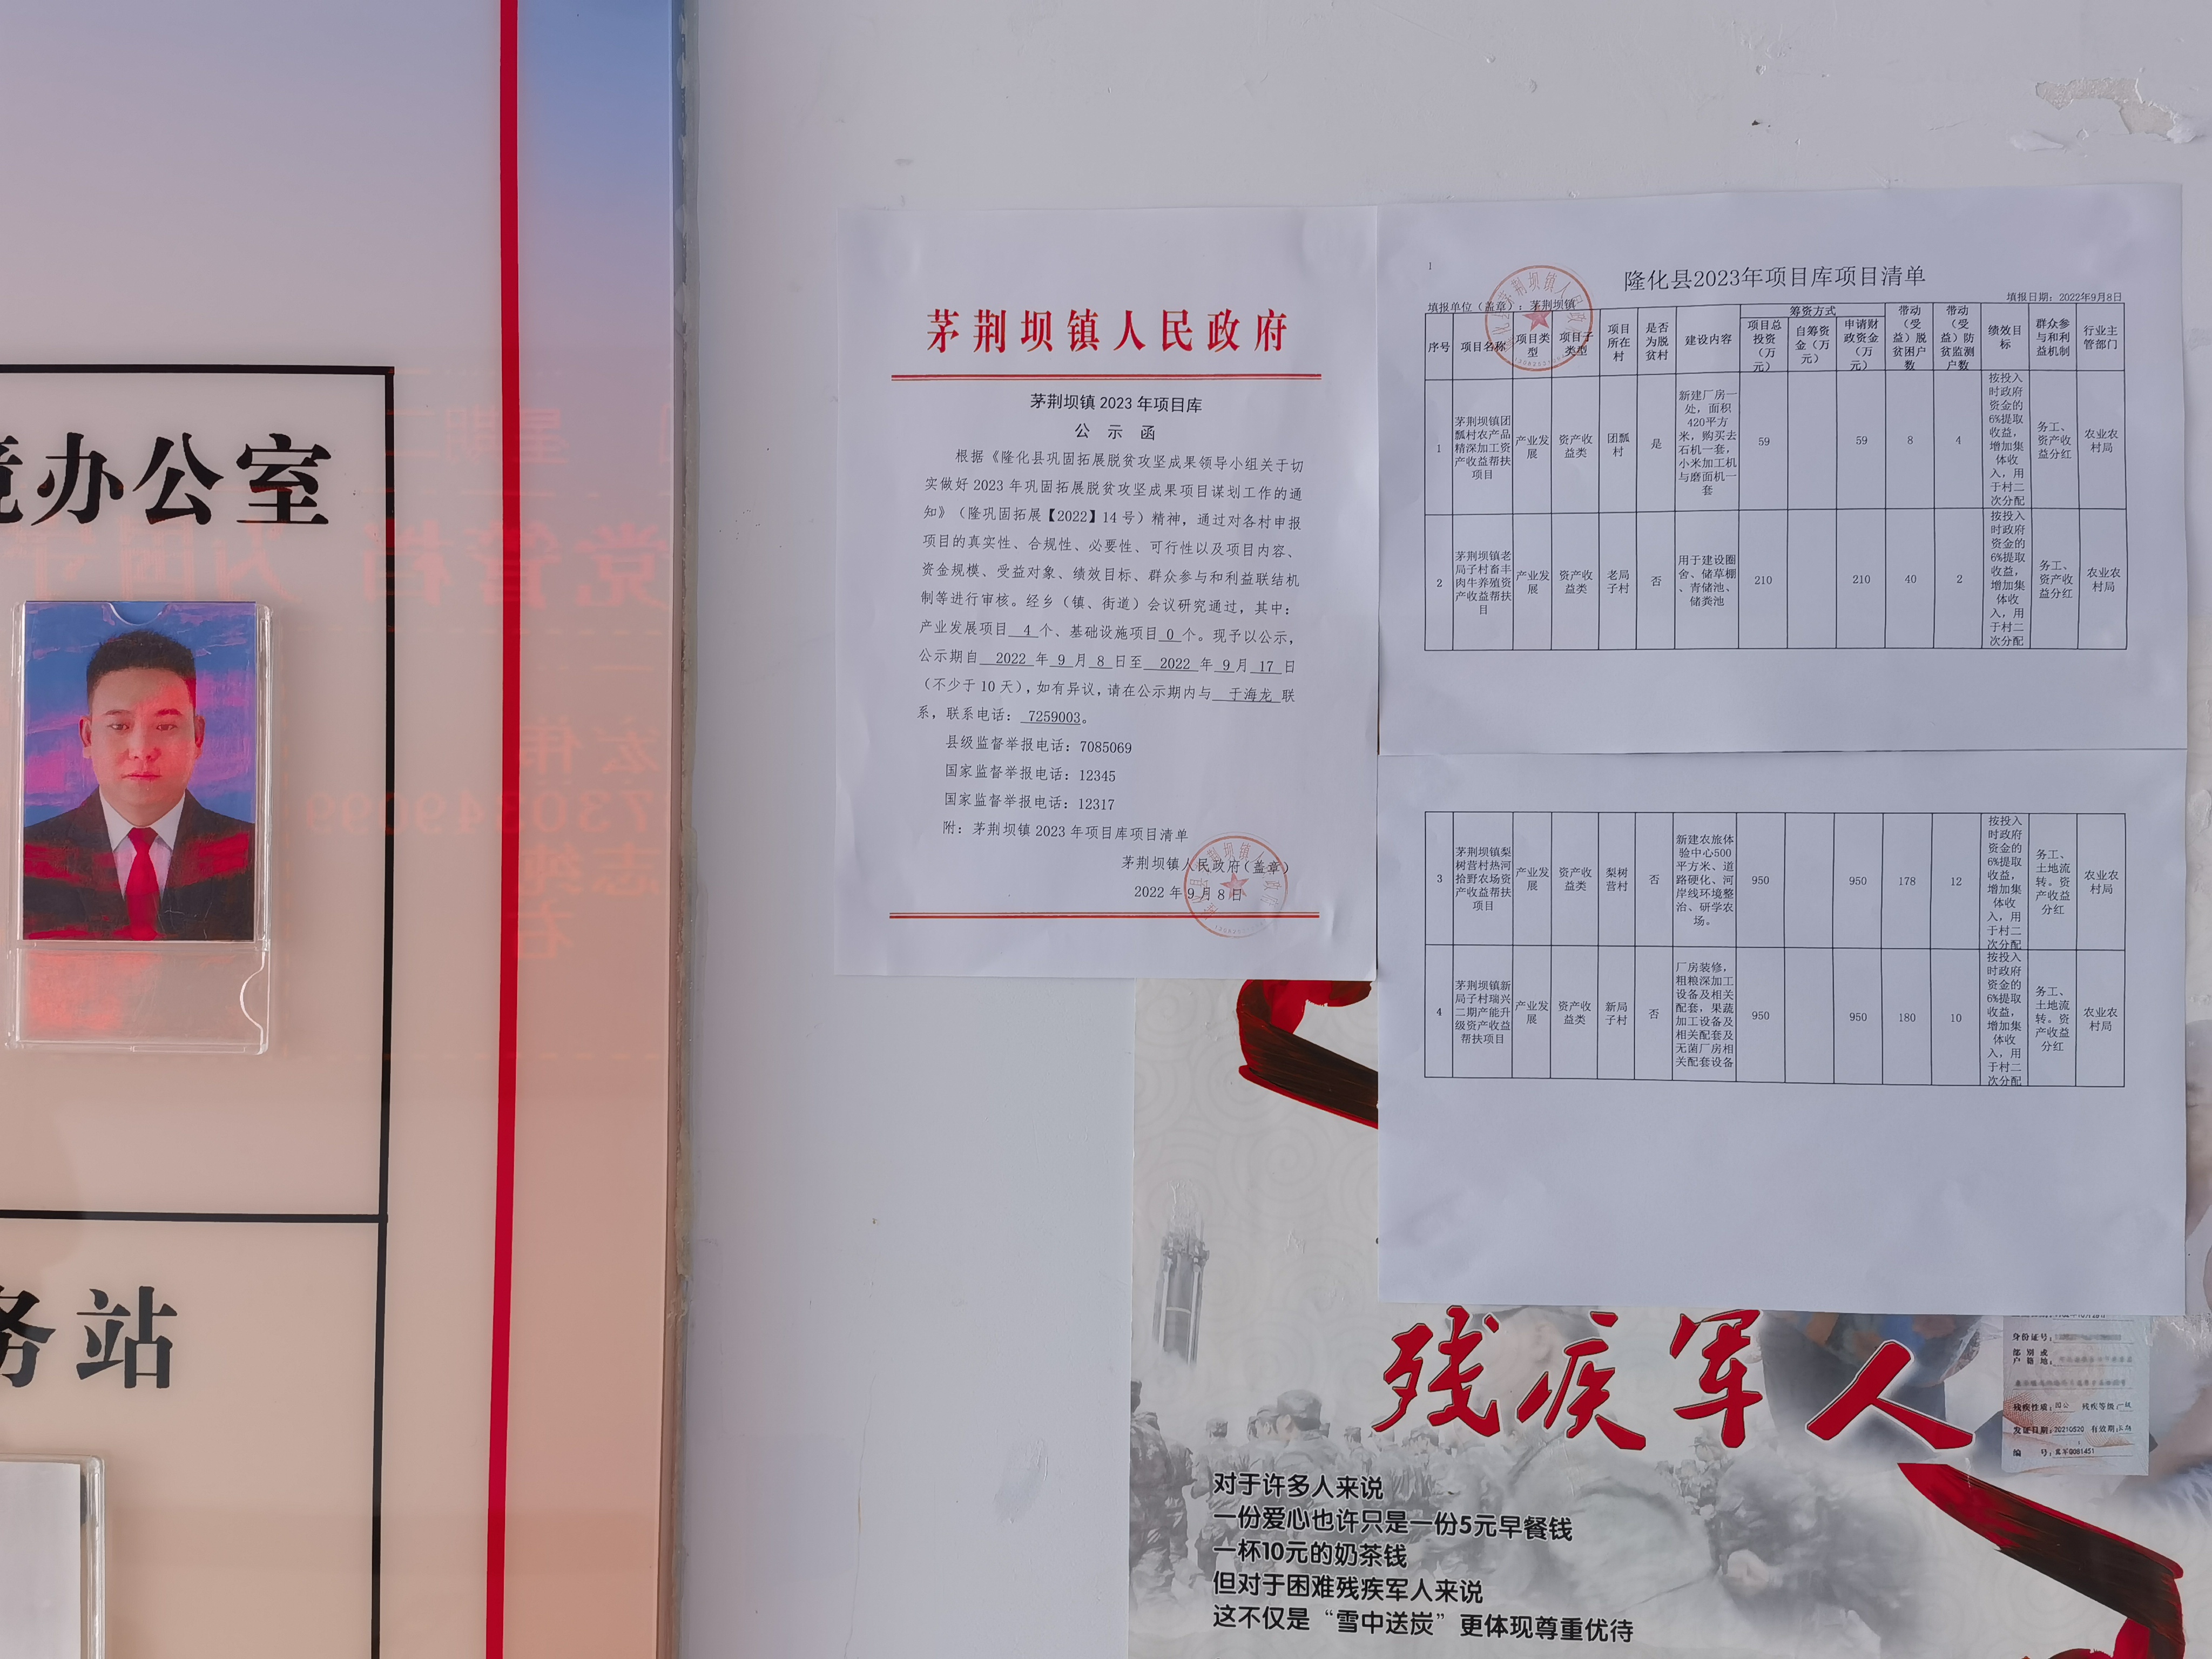 办公室
站
茅荆坝镇人民政府
茅荆坝镇 2023 年项目库
公 示 函
根据《隆化县巩固拓展脱贫攻坚成果领导小组关于切
实做好 2023 年巩固拓展脱贫攻坚成果项目谋划工作的通
知》（隆巩固拓展【2022】14 号）精神，通过对各村申报
项目的真实性、合规性、必要性、可行性以及项目内容、
资金规模、受益对象、绩效目标、群众参与和利益联结机
制等进行审核。经乡（镇、街道）会议研究通过，其中：
产业发展项目 4 个、基础设施项目 0 个。现予以公示，
公示期自 2022 年 9 月 8 日至 2022 年 9 月 17 日
（不少于 10 天），如有异议，请在公示期内与 于海龙 联
系，联系电话： 7259003。
县级监督举报电话：7085069
国家监督举报电话：12345
国家监督举报电话：12317
附：茅荆坝镇 2023 年项目库项目清单
茅荆坝镇人民政府（盖章）
2022 年 9 月 8 日
1
隆化县2023年项目库项目清单
填报单位（盖章）：茅荆坝镇
填报日期：2022年9月8日
序号 项目名称 项目类型 项目子类型 项目所在村 是否为脱贫村 建设内容 筹资方式 项目总投资（万元） 自筹资金（万元） 申请财政资金（万元） 带动（受益）脱贫困户数 带动（受益）防贫监测户数 绩效目标 群众参与和利益机制 行业主管部门
1 茅荆坝镇团瓢村农产品精深加工资产收益帮扶项目 产业发展 资产收益类 团瓢村 是 新建厂房一处，面积420平方米，购买去石机一套，小米加工机与磨面机一套 59 59 8 4 按投入时政府资金的6%提取收益，增加集体收入，用于村二次分配 务工、资产收益分红 农业农村局
2 茅荆坝镇老局子村畜丰肉牛养殖资产收益帮扶项目 产业发展 资产收益类 老局子村 否 用于建设圈舍、储草棚、青储池、储粪池 210 210 40 2 按投入时政府资金的6%提取收益，增加集体收入，用于村二次分配 务工、资产收益分红 农业农村局
3 茅荆坝镇梨树营村热河拾野农场资产收益帮扶项目 产业发展 资产收益类 梨树营村 否 新建农旅体验中心500平方米、道路硬化、河岸线环境整治、研学农场。 950 950 178 12 按投入时政府资金的6%提取收益，增加集体收入，用于村二次分配 务工、土地流转。资产收益分红 农业农村局
4 茅荆坝镇新局子村瑞兴二期产能升级资产收益帮扶项目 产业发展 资产收益类 新局子村 否 厂房装修，粗粮深加工设备及相关配套，果蔬加工设备及相关配套及无菌厂房相关配套设备 950 950 180 10 按投入时政府资金的6%提取收益，增加集体收入，用于村二次分配 务工、土地流转。资产收益分红 农业农村局
残疾军人
身份证号：
部别或
户籍地：
残疾性质：因公 残疾等级：
发证日期：20210520 有效期：
编 号：冀军Q081451
对于许多人来说
一份爱心也许只是一份5元早餐钱
一杯10元的奶茶钱
但对于困难残疾军人来说
这不仅是“雪中送炭”更体现尊重优待